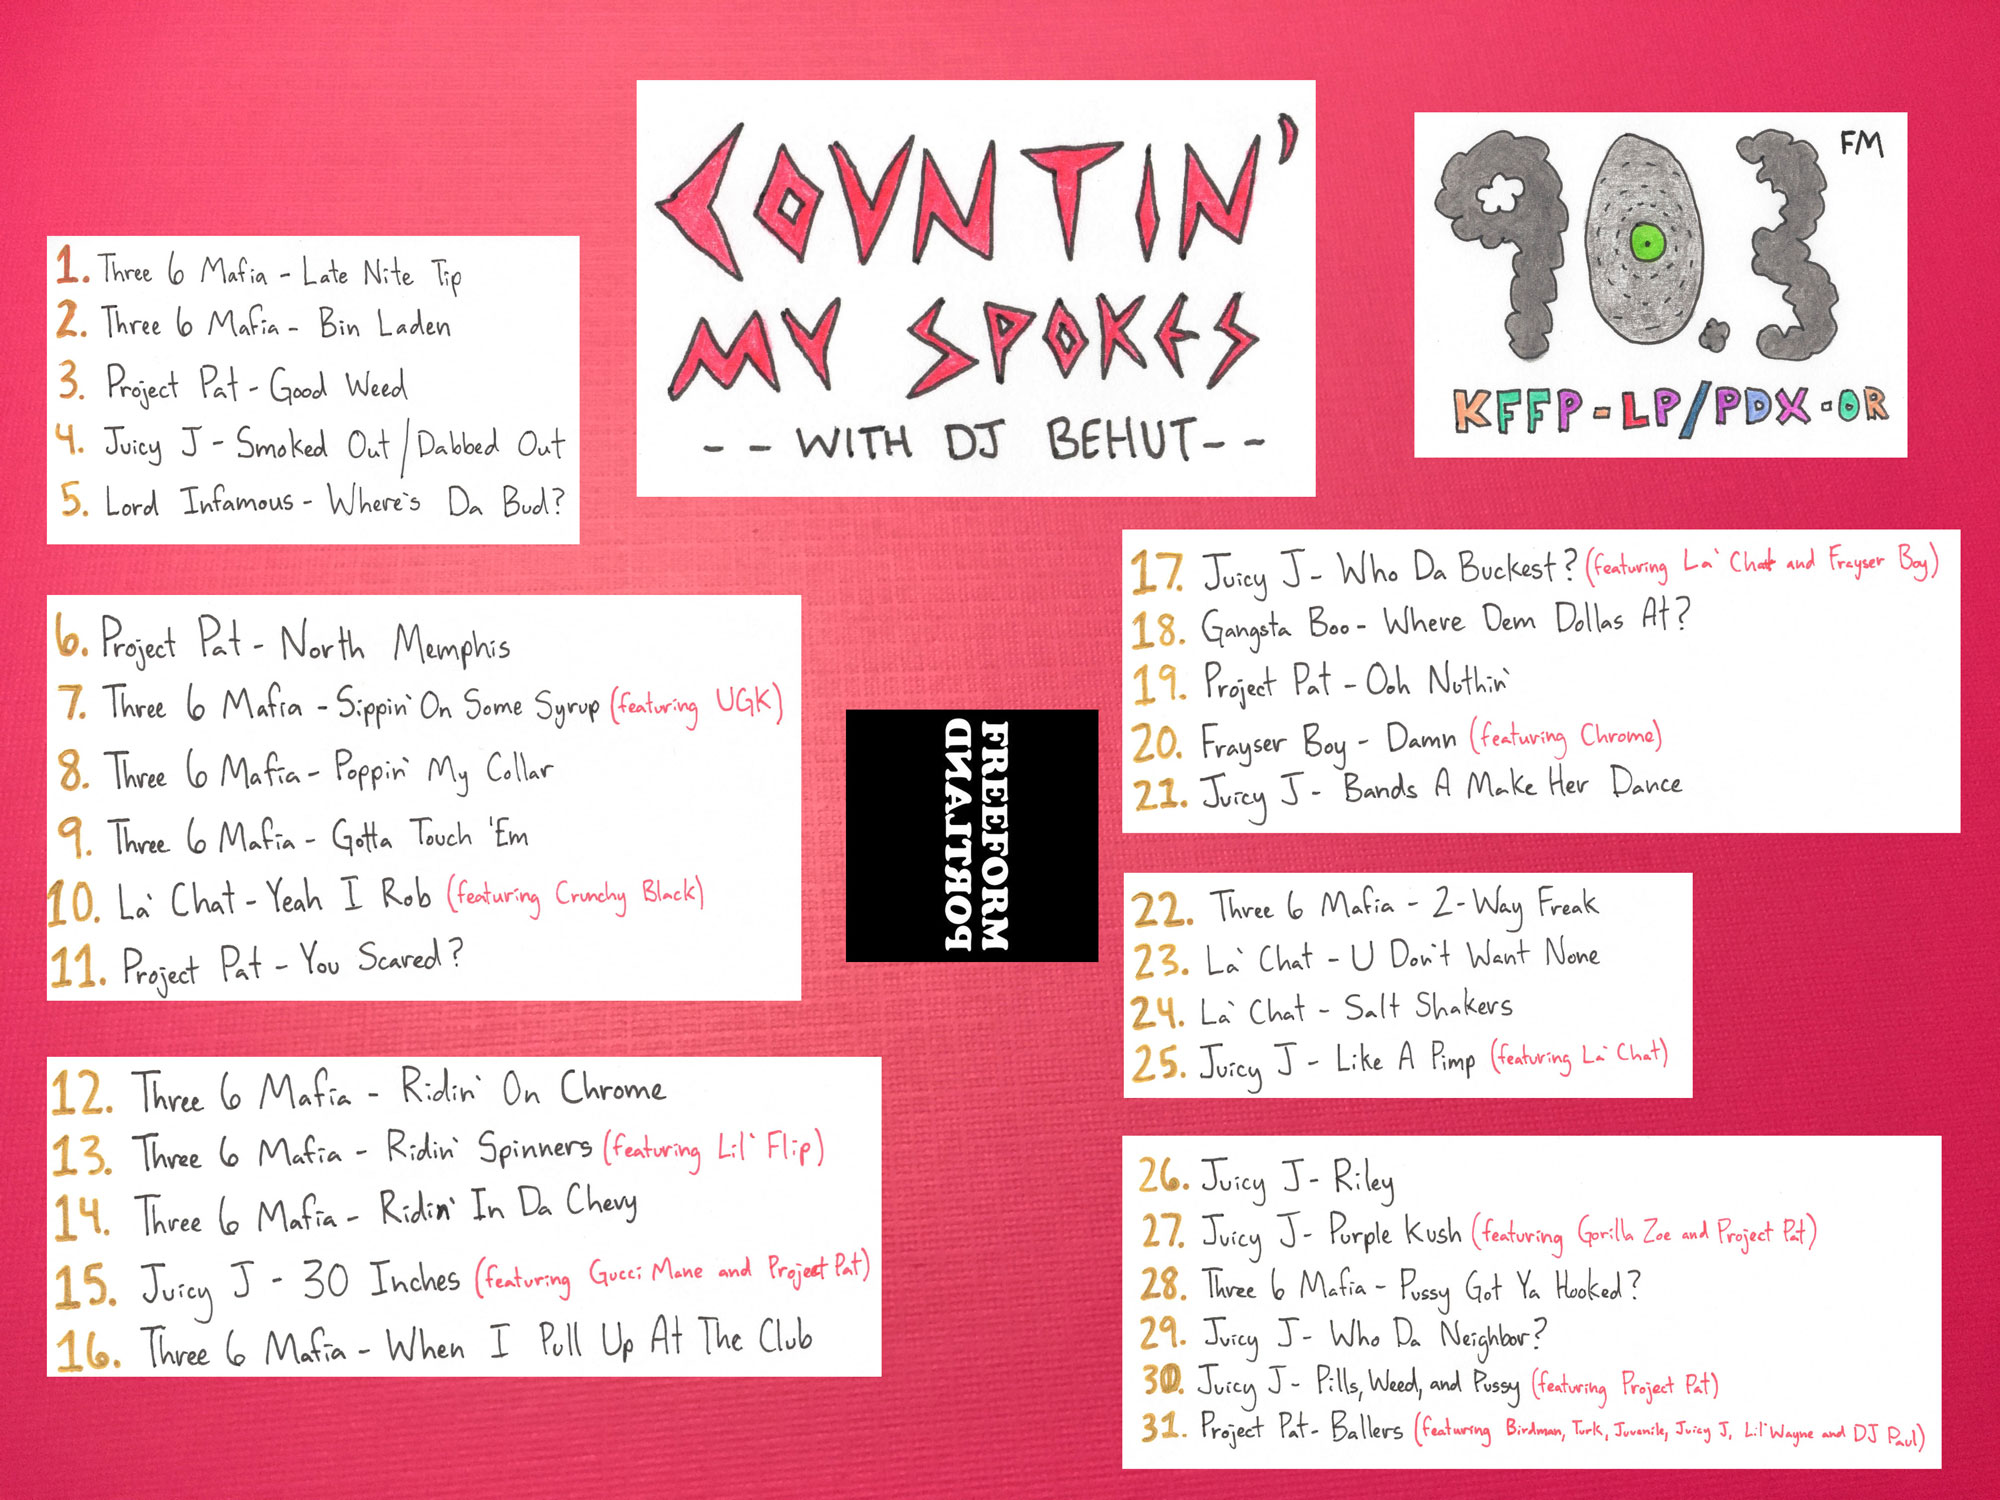 COUNTIN'
MY SPOKES
-- WITH DJ BEHUT --
90.3 FM
KFFP-LP/PDX-OR
1. Three 6 Mafia - Late Nite Tip
2. Three 6 Mafia - Bin Laden
3. Project Pat - Good Weed
4. Juicy J - Smoked Out/Dabbed Out
5. Lord Infamous - Where's Da Bud?
6. Project Pat - North Memphis
7. Three 6 Mafia - Sippin' On Some Syrup (featuring UGK)
8. Three 6 Mafia - Poppin' My Collar
9. Three 6 Mafia - Gotta Touch 'Em
10. La' Chat - Yeah I Rob (featuring Crunchy Black)
11. Project Pat - You Scared?
12. Three 6 Mafia - Ridin' On Chrome
13. Three 6 Mafia - Ridin' Spinners (featuring Lil' Flip)
14. Three 6 Mafia - Ridin' In Da Chevy
15. Juicy J - 30 Inches (featuring Gucci Mane and Project Pat)
16. Three 6 Mafia - When I Pull Up At The Club
FREEFORM
PORTLAND
17. Juicy J - Who Da Buckest? (featuring La' Chat and Frayser Boy)
18. Gangsta Boo - Where Dem Dollas At?
19. Project Pat - Ooh Nuthin'
20. Frayser Boy - Damn (featuring Chrome)
21. Juicy J - Bands A Make Her Dance
22. Three 6 Mafia - 2-Way Freak
23. La' Chat - U Don't Want None
24. La' Chat - Salt Shakers
25. Juicy J - Like A Pimp (featuring La' Chat)
26. Juicy J - Riley
27. Juicy J - Purple Kush (featuring Gorilla Zoe and Project Pat)
28. Three 6 Mafia - Pussy Got Ya Hooked?
29. Juicy J - Who Da Neighbor?
30. Juicy J - Pills, Weed, and Pussy (featuring Project Pat)
31. Project Pat - Ballers (featuring Birdman, Turk, Juvenile, Juicy J, Lil' Wayne and DJ Paul)